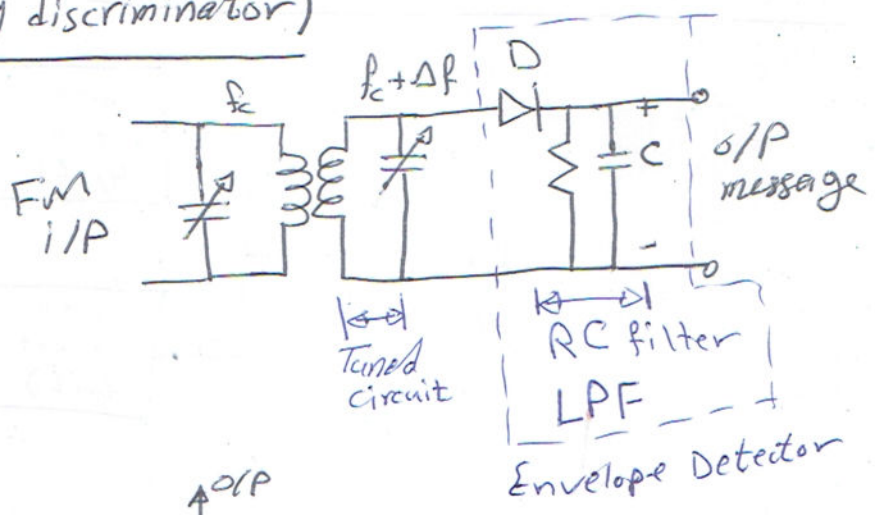 discriminator)
fc
fc + Δf
D
FM
i/P
+
C
-
o/P
message
Tuned
circuit
RC filter
LPF
Envelope Detector
o/P